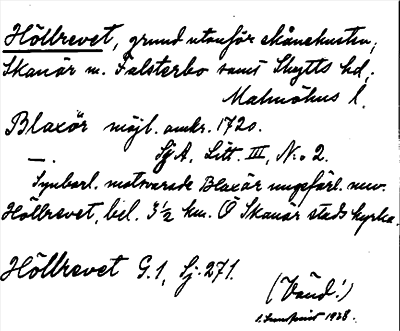 Höllrevet, grund utanför Skånekusten,
Skanör m. Falsterbo samt Skytts hd,
Malmöhus l.
Blaxör möjl. omkr. 1720.
—. SjA, Litt. III, N:o 2.
Synbarl. motsvarade Blaxör ungefärl. nuv.
Höllrevet, bel. 3 1/2 km. Ö Skanör stads kyrka.
Höllrevet G.1, Sj. 271.
(Vänd!)
1938.